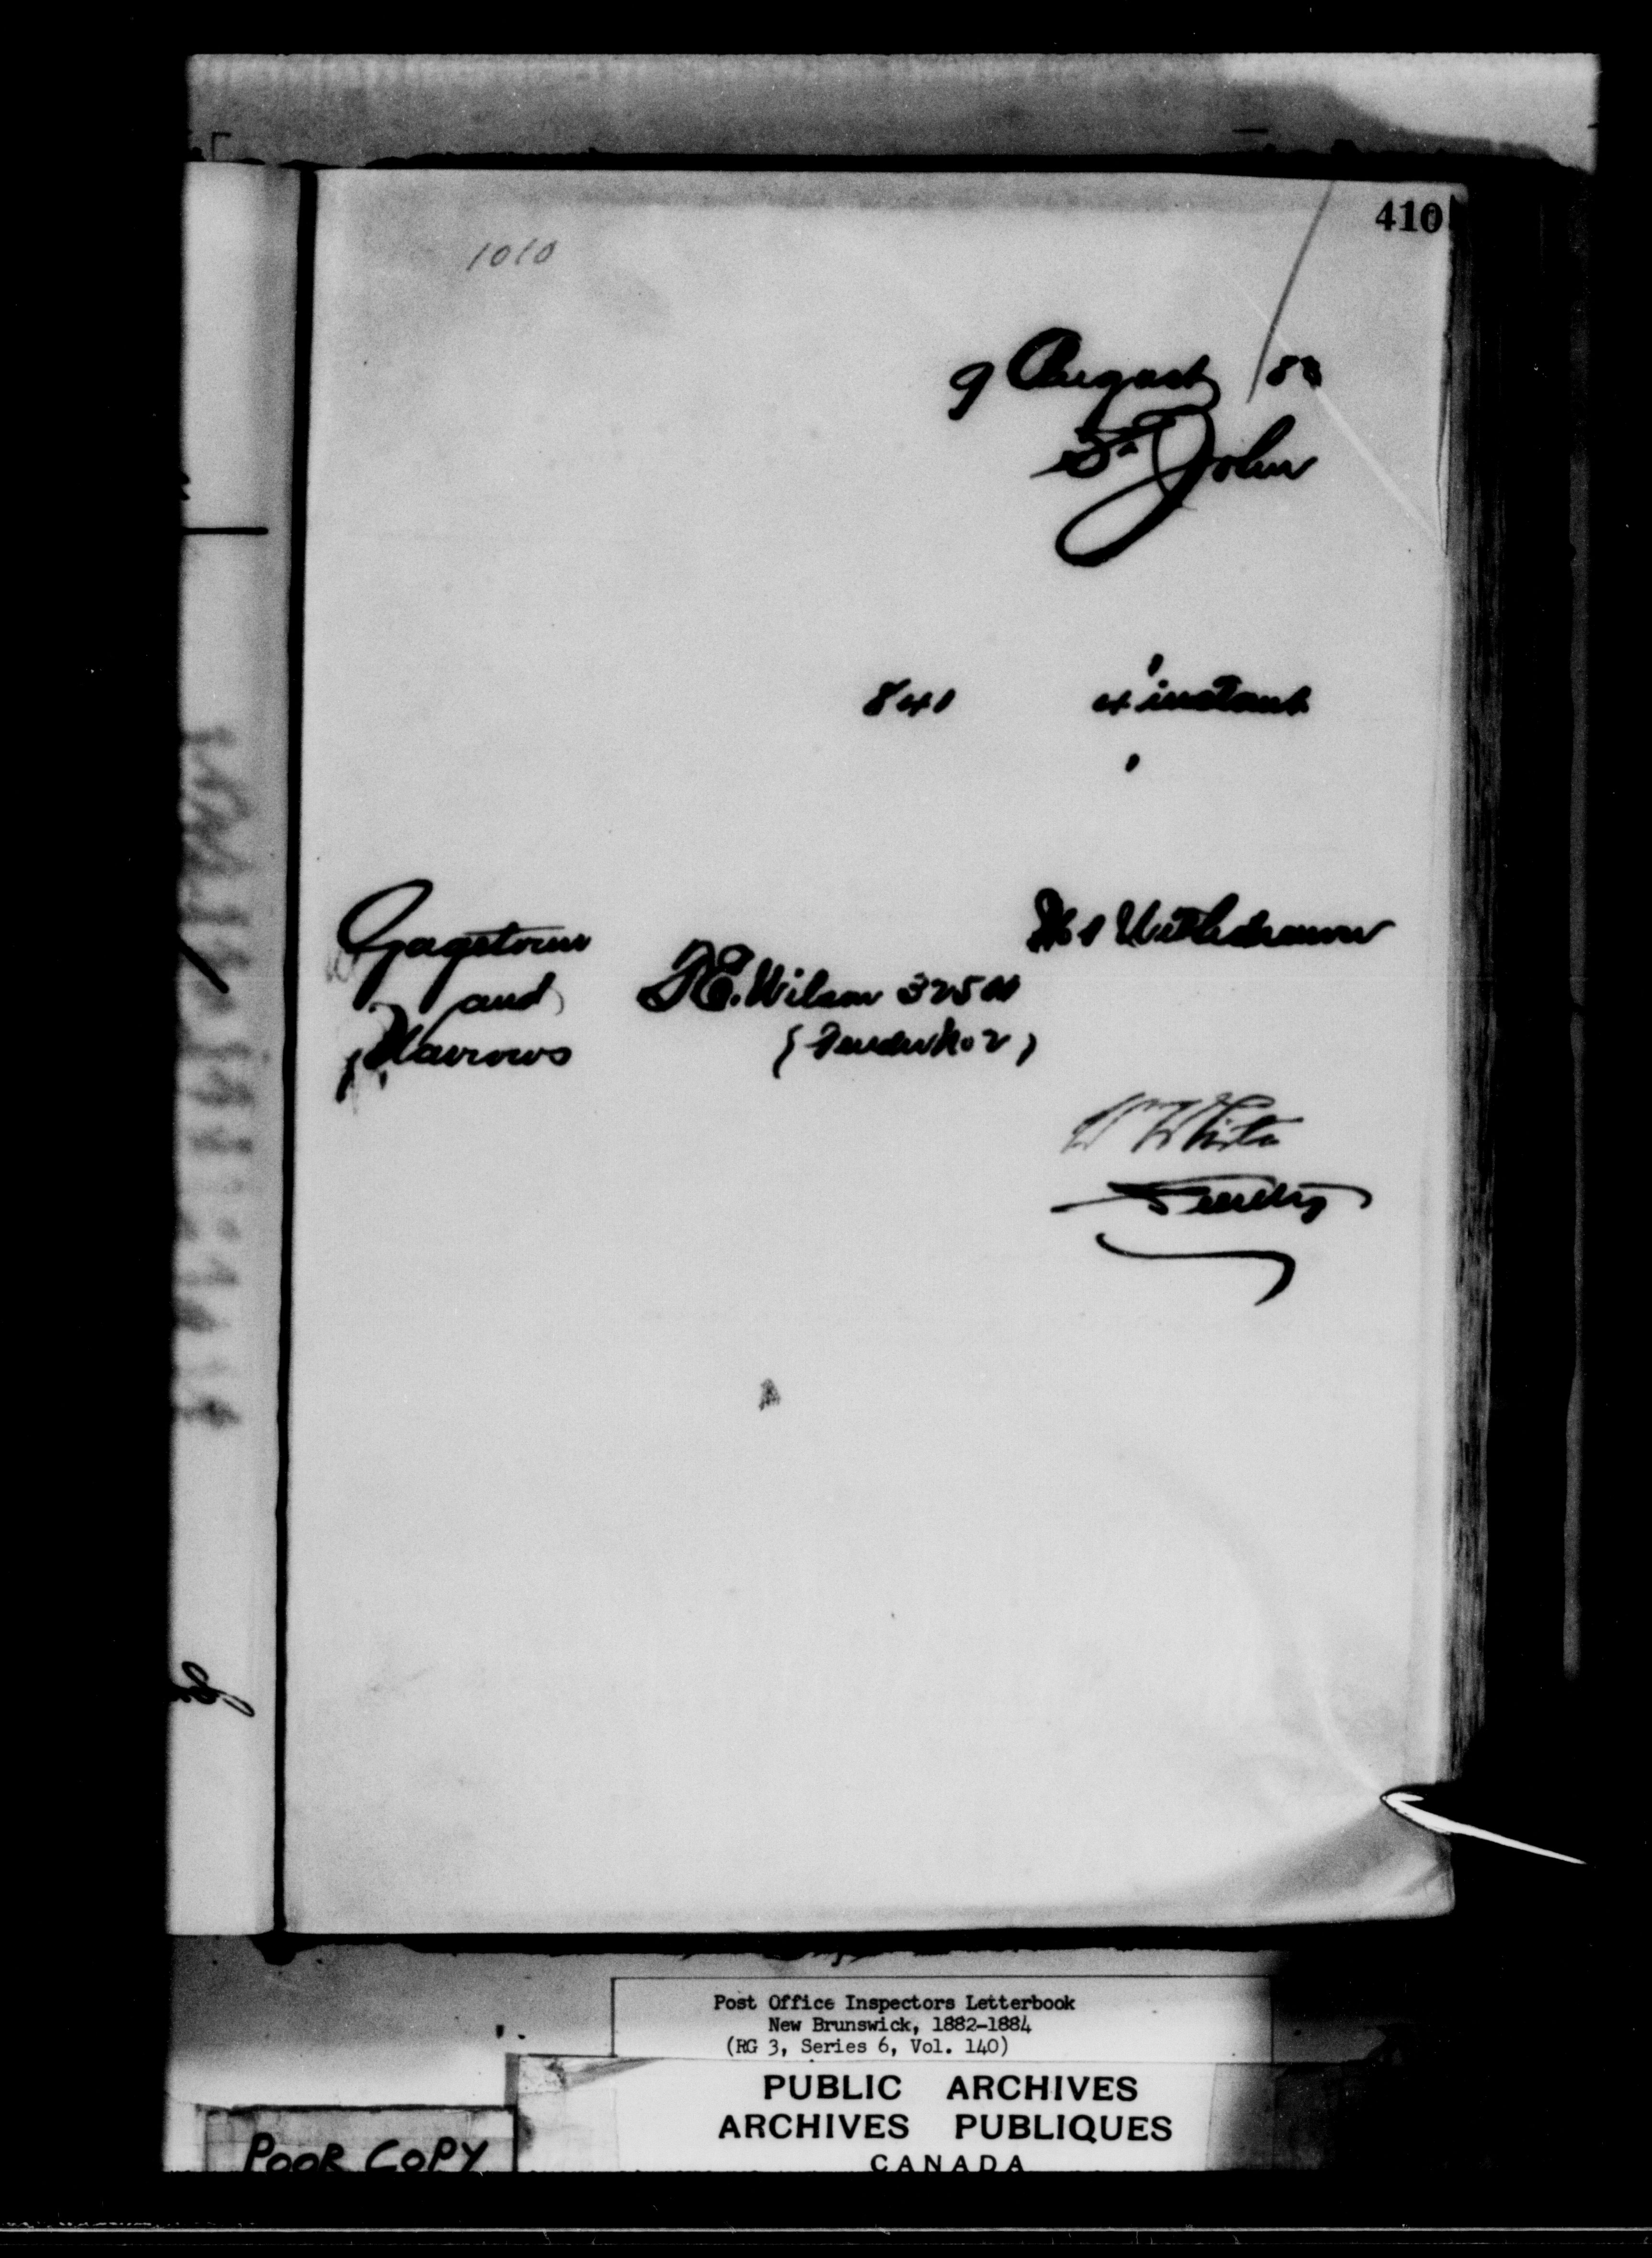 410
1010
9 August 83
St John
841 4 instant
No 1 Withdrawn
Gagetown
and
Narrows
F.E. Wilson 325 00
(Tender No 2)
W White
Secretary
Post Office Inspectors Letterbook
New Brunswick, 1882-1884
(RG 3, Series 6, Vol. 140)
PUBLIC ARCHIVES
ARCHIVES PUBLIQUES
CANADA
POOR COPY